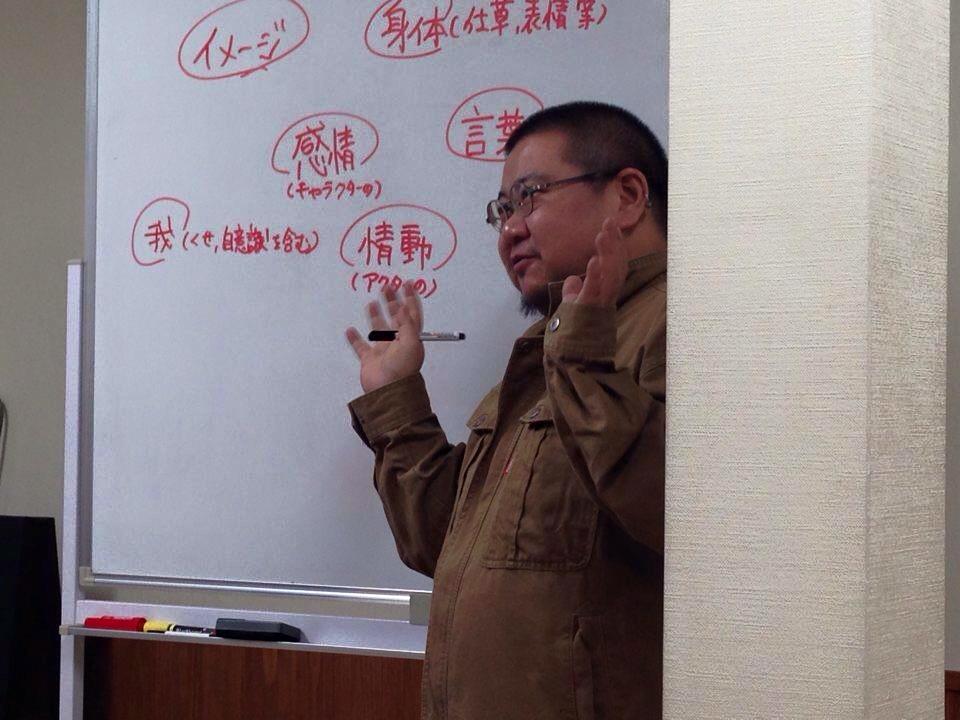 イメージ
身体(仕草,表情等)
感情
(キャラクターの)
言葉
我(くせ,自意識を含む)
情動
(アクターの)